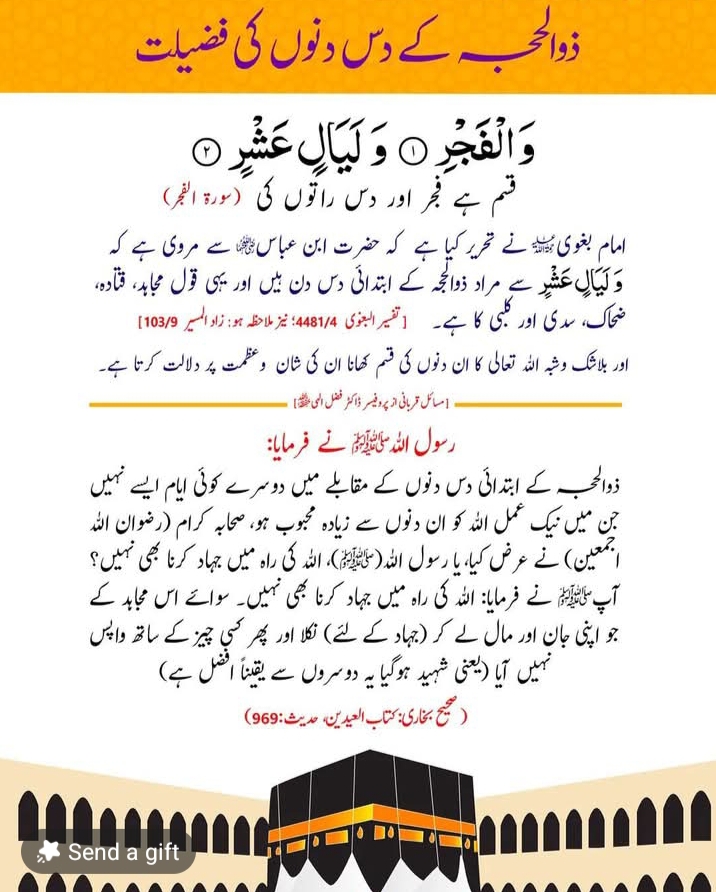 ذوالحجہ کے دس دنوں کی فضیلت
وَالْفَجْرِ ۝۱ وَلَيَالٍ عَشْرٍ ۝۲
قسم ہے فجر اور دس راتوں کی (سورۃ الفجر)
امام بغوی رحمۃ اللہ علیہ نے تحریر کیا ہے کہ حضرت ابن عباس رضی اللہ عنہما سے مروی ہے کہ
وَلَيَالٍ عَشْرٍ سے مراد ذوالحجہ کے ابتدائی دس دن ہیں اور یہی قول مجاہد، قتادہ،
ضحاک، سدی اور کلبی کا ہے۔ [تفسیر البغوی 4481/4؛ نیز ملاحظہ ہو: زاد المسیر 103/9]
اور بلاشک وشبہ اللہ تعالی کا ان دنوں کی قسم کھانا ان کی شان وعظمت پر دلالت کرتا ہے۔
[مسائل قربانی از پروفیسر ڈاکٹر فضل الہی]
رسول اللہ ﷺ نے فرمایا:
ذوالحجہ کے ابتدائی دس دنوں کے مقابلے میں دوسرے کوئی ایام ایسے نہیں
جن میں نیک عمل اللہ کو ان دنوں سے زیادہ محبوب ہو، صحابہ کرام (رضوان اللہ
اجمعین) نے عرض کیا، یا رسول اللہ (ﷺ)، اللہ کی راہ میں جہاد کرنا بھی نہیں؟
آپ ﷺ نے فرمایا: اللہ کی راہ میں جہاد کرنا بھی نہیں۔ سوائے اس مجاہد کے
جو اپنی جان اور مال لے کر (جہاد کے لئے) نکلا اور پھر کسی چیز کے ساتھ واپس
نہیں آیا (یعنی شہید ہوگیا یہ دوسروں سے یقیناً افضل ہے)
(صحیح بخاری: کتاب العیدین، حدیث: 969)
Send a gift